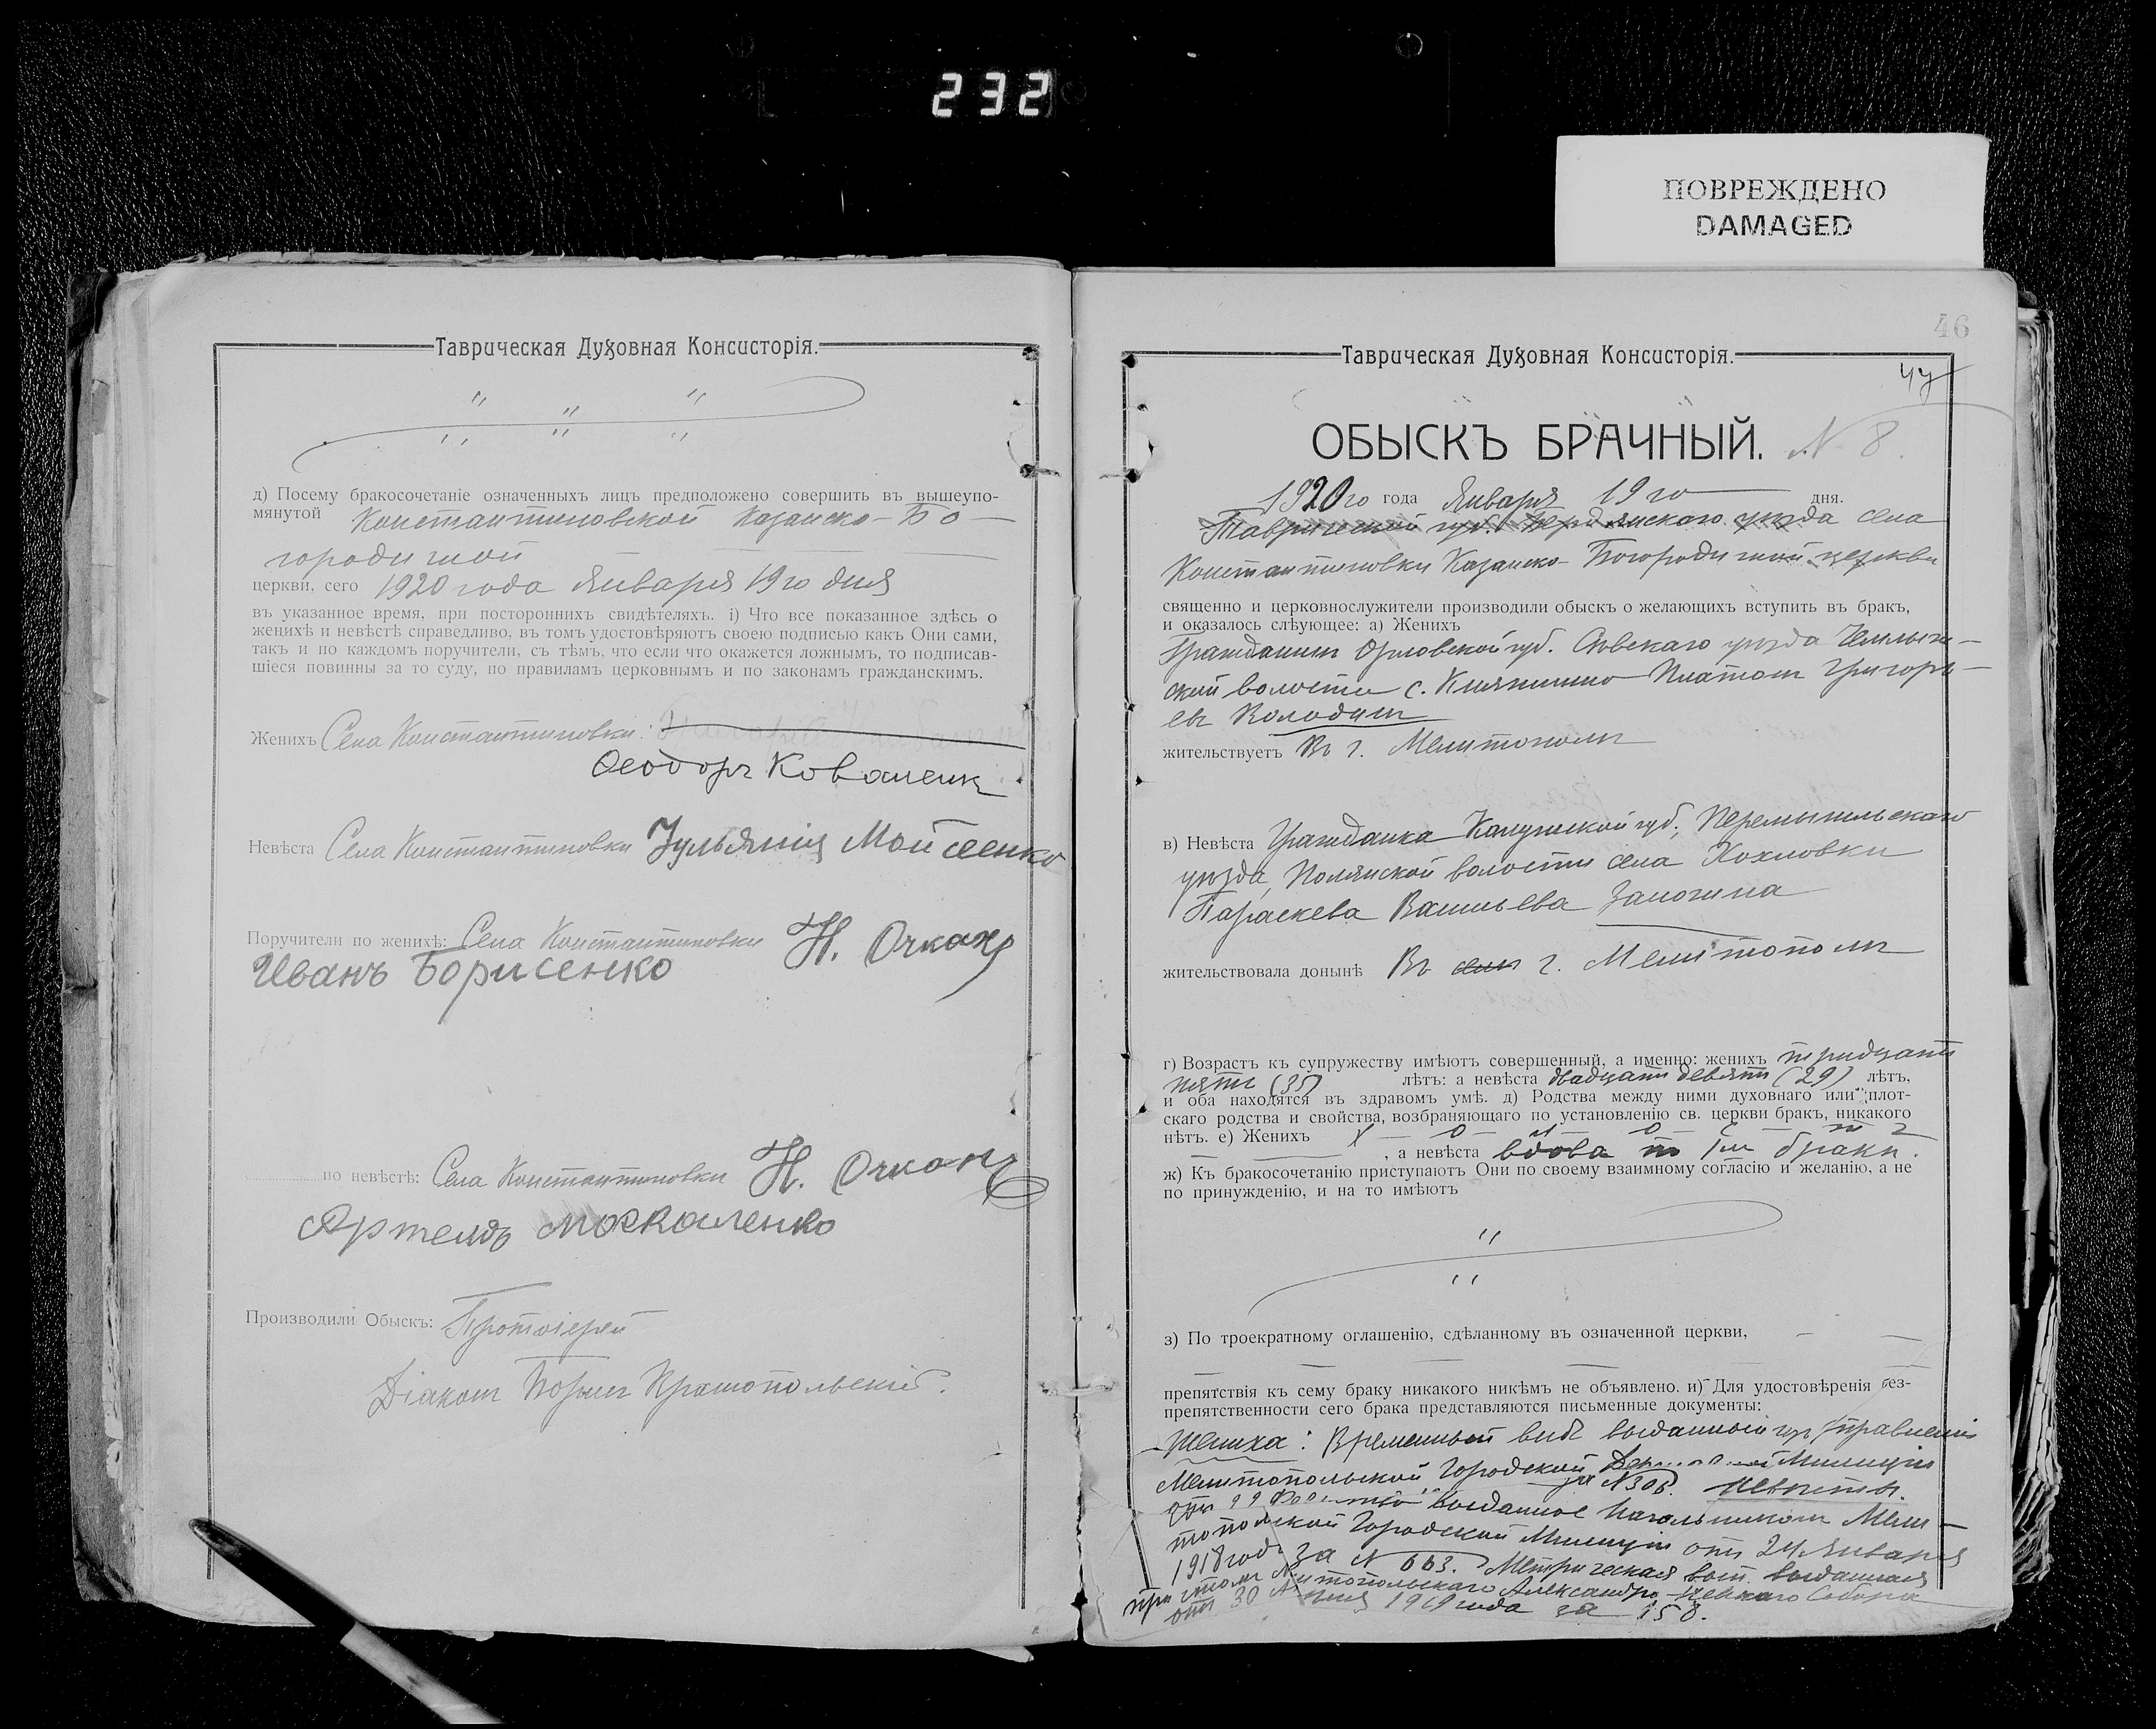 232
ПОВРЕЖДЕНО
DAMAGED
Таврическая Духовная Консисторія.
д) Посему бракосочетаніе означенныхъ лицъ предположено совершить въ вышеупо-
мянутой Константиновской Казанско-Бо-
городичной
церкви, сего 1920 года Января 19го дня
въ указанное время, при постороннихъ свидѣтеляхъ. і) Что все показанное здѣсь о
женихѣ и невѣстѣ справедливо, въ томъ удостовѣряютъ своею подписью какъ Они сами,
такъ и по каждомъ поручители, съ тѣмъ, что если что окажется ложнымъ, то подписав-
шіеся повинны за то суду, по правиламъ церковнымъ и по законамъ гражданскимъ.
Женихъ Села Константиновки:
Ѳеодоръ Коваленк
Невѣста Села Константиновки Іульянія Мойсеенко
Поручители по женихѣ: Села Константиновки Н. Очкас
Иванъ Борисенко
по невѣстѣ: Села Константиновки Н. Очкас
Артемъ Москаленко
Производили Обыскъ: Протоіерей
Діаконъ Борисъ Крамопольскій.
46
47
Таврическая Духовная Консисторія.
ОБЫСКЪ БРАЧНЫЙ. N 8.
1920го года Января 19го дня.
Таврической губ. Бердянскаго уѣзда села
Константиновки Казанско-Богородичной церкви
священно и церковнослужители производили обыскъ о желающихъ вступить въ бракъ,
и оказалось слѣующее: а) Женихъ
Гражданинъ Орловской губ. Сѣвскаго уѣзда
ской волости с. Княгинино Платонъ Григорь-
евъ Колодинъ
жительствуетъ Въ г. Мелитополѣ
в) Невѣста Гражданка Калужской губ., Перемышльскаго
уѣзда, Полянской волости села Хохловки
Параскева Васильева Замогина
жительствовала донынѣ Въ селѣ г. Мелитополѣ
г) Возрастъ къ супружеству имѣютъ совершенный, а именно: женихъ тридцати
пяти (35) лѣтъ: а невѣста двадцати девяти (29) лѣтъ,
и оба находятся въ здравомъ умѣ. д) Родства между ними духовнаго или плот-
скаго родства и свойства, возбраняющаго по установленію св. церкви бракъ, никакого
нѣтъ. е) Женихъ Х — о — л — о — с — т — ъ
, а невѣста вдова по 1мъ бракѣ.
ж) Къ бракосочетанію приступаютъ Они по своему взаимному согласію и желанію, а не
по принужденію, и на то имѣютъ
з) По троекратному оглашенію, сдѣланному въ означенной церкви,
препятствія къ сему браку никакого никѣмъ не объявлено. и) Для удостовѣренія без-
препятственности сего брака представляются письменные документы:
Жениха: Временный видъ выданный Управленія
Мелитопольской Городской Милиціи
за N306. Невѣсты.
выданное Начальникомъ Мели-
топольской Городской Милиціи отъ 24 Января
1918 года за N 663. Метрическая вып. выданная
Мелитопольскаго Александро-Невскаго Собора
отъ 30 1919 года за 158.